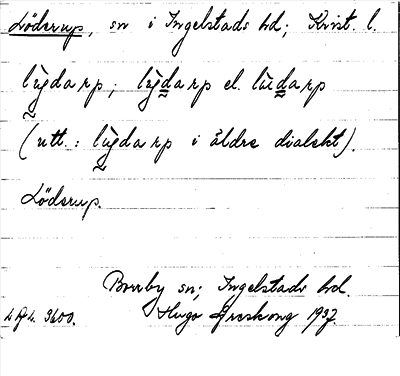 Löderup, sn i Ingelstads hd; Krist. l.
lỳdarp; lỳdarp el. lùdarp
(utt.: lỳdarp i äldre dialekt).
Löderup.
Borrby sn; Ingelstads hd.
Hugo Areskoug 1937.